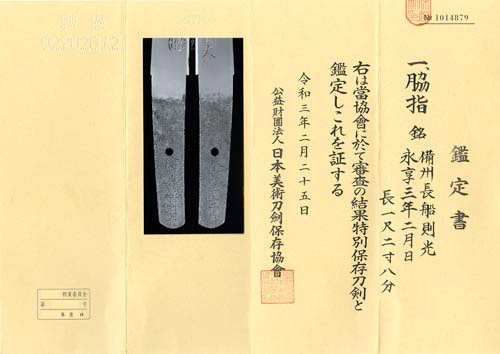 № 1014879
鑑定書
一、脇指 銘 備州長船則光
永享三年二月日
長一尺二寸八分
右は當協會に於て審査の結果特別保存刀剣と
鑑定しこれを証する
令和三年二月二十五日
公益財團法人日本美術刀劍保存協會
大
第 号